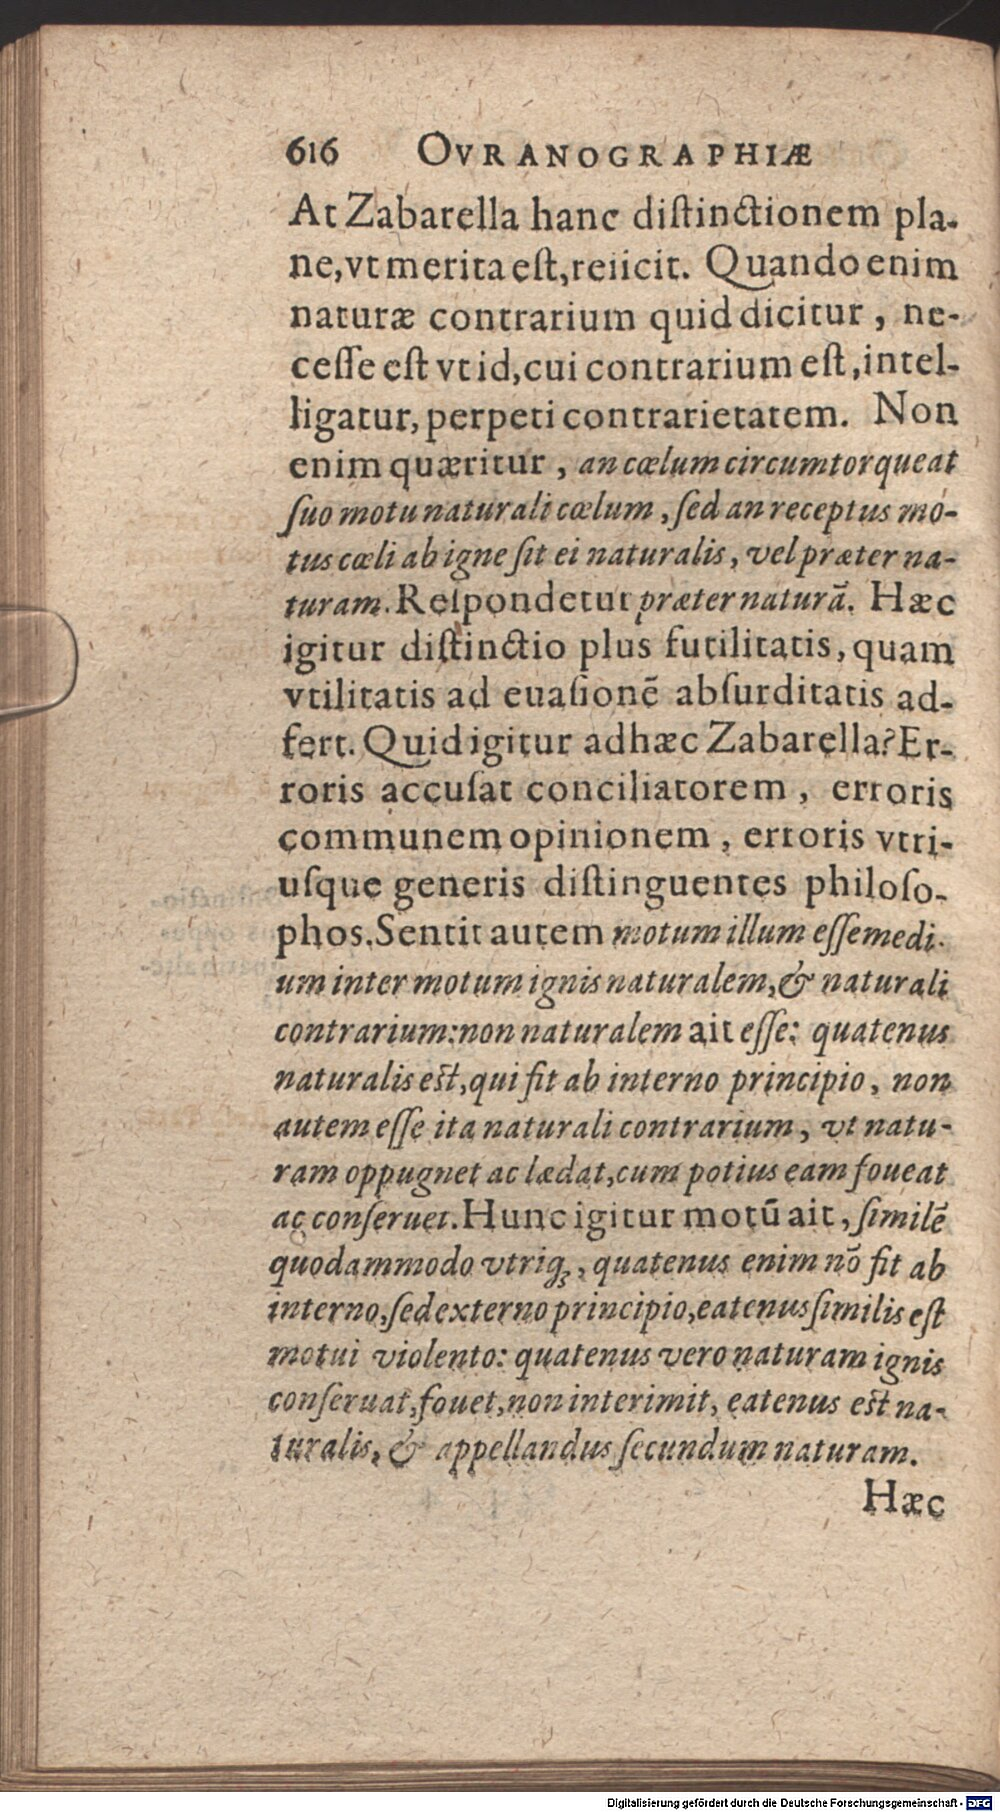 616 OVRANOGRAPHIÆ
At Zabarella hanc diſtinctionem pla-
ne, vt merita eſt, reiicit. Quando enim
naturæ contrarium quid dicitur, ne-
ceſſe eſt vt id, cui contrarium eſt, intel-
ligatur, perpeti contrarietatem. Non
enim quæritur, an cœlum circumtorqueat
ſuo motu naturali cœlum, ſed an receptus mo-
tus cœli ab igne ſit ei naturalis, vel præter na-
turam. Reſpondetur præter naturā. Hæc
igitur diſtinctio plus futilitatis, quam
vtilitatis ad euaſionē abſurditatis ad-
fert. Quid igitur ad hæc Zabarella? Er-
roris accuſat conciliatorem, erroris
communem opinionem, erroris vtri-
uſque generis diſtinguentes philoſo-
phos. Sentit autem motum illum eſſe medi-
um inter motum ignis naturalem, & naturali
contrarium: non naturalem ait eſſe: quatenus
naturalis eſt, qui fit ab interno principio, non
autem eſſe ita naturali contrarium, vt natu-
ram oppugnet ac lædat, cum potius eam foueat
ac conſeruet. Hunc igitur motū ait, ſimilē
quodammodo vtriq;, quatenus enim nō fit ab
interno, ſed externo principio, eatenus ſimilis eſt
motui violento: quatenus vero naturam ignis
conſeruat, fouet, non interimit, eatenus eſt na-
turalis, & appellandus ſecundum naturam.
Hæc
Digitalisierung gefördert durch die Deutsche Forschungsgemeinschaft - DFG